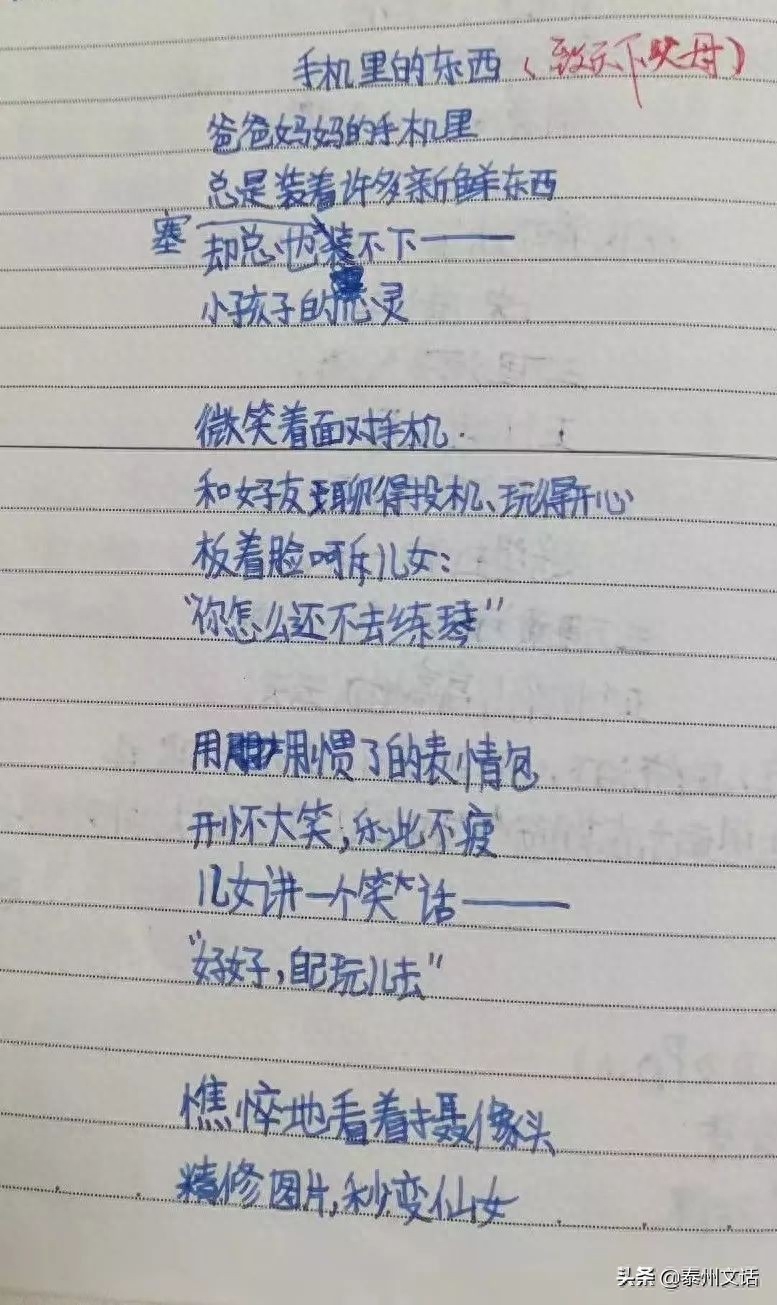 手机里的东西（致天下父母）
爸爸妈妈的手机里
总是装着许多新鲜东西
塞
却总也装不下——
小孩子的心灵
微笑着面对手机.
和好友聊得投机、玩得开心
板着脸呵斥儿女：
“你怎么还不去练琴”
用用惯了的表情包
开怀大笑，乐此不疲
儿女讲一个笑话——
“好好，自己玩儿去”
憔悴地看着摄像头
精修图片，秒变仙女
头条 @泰州文话